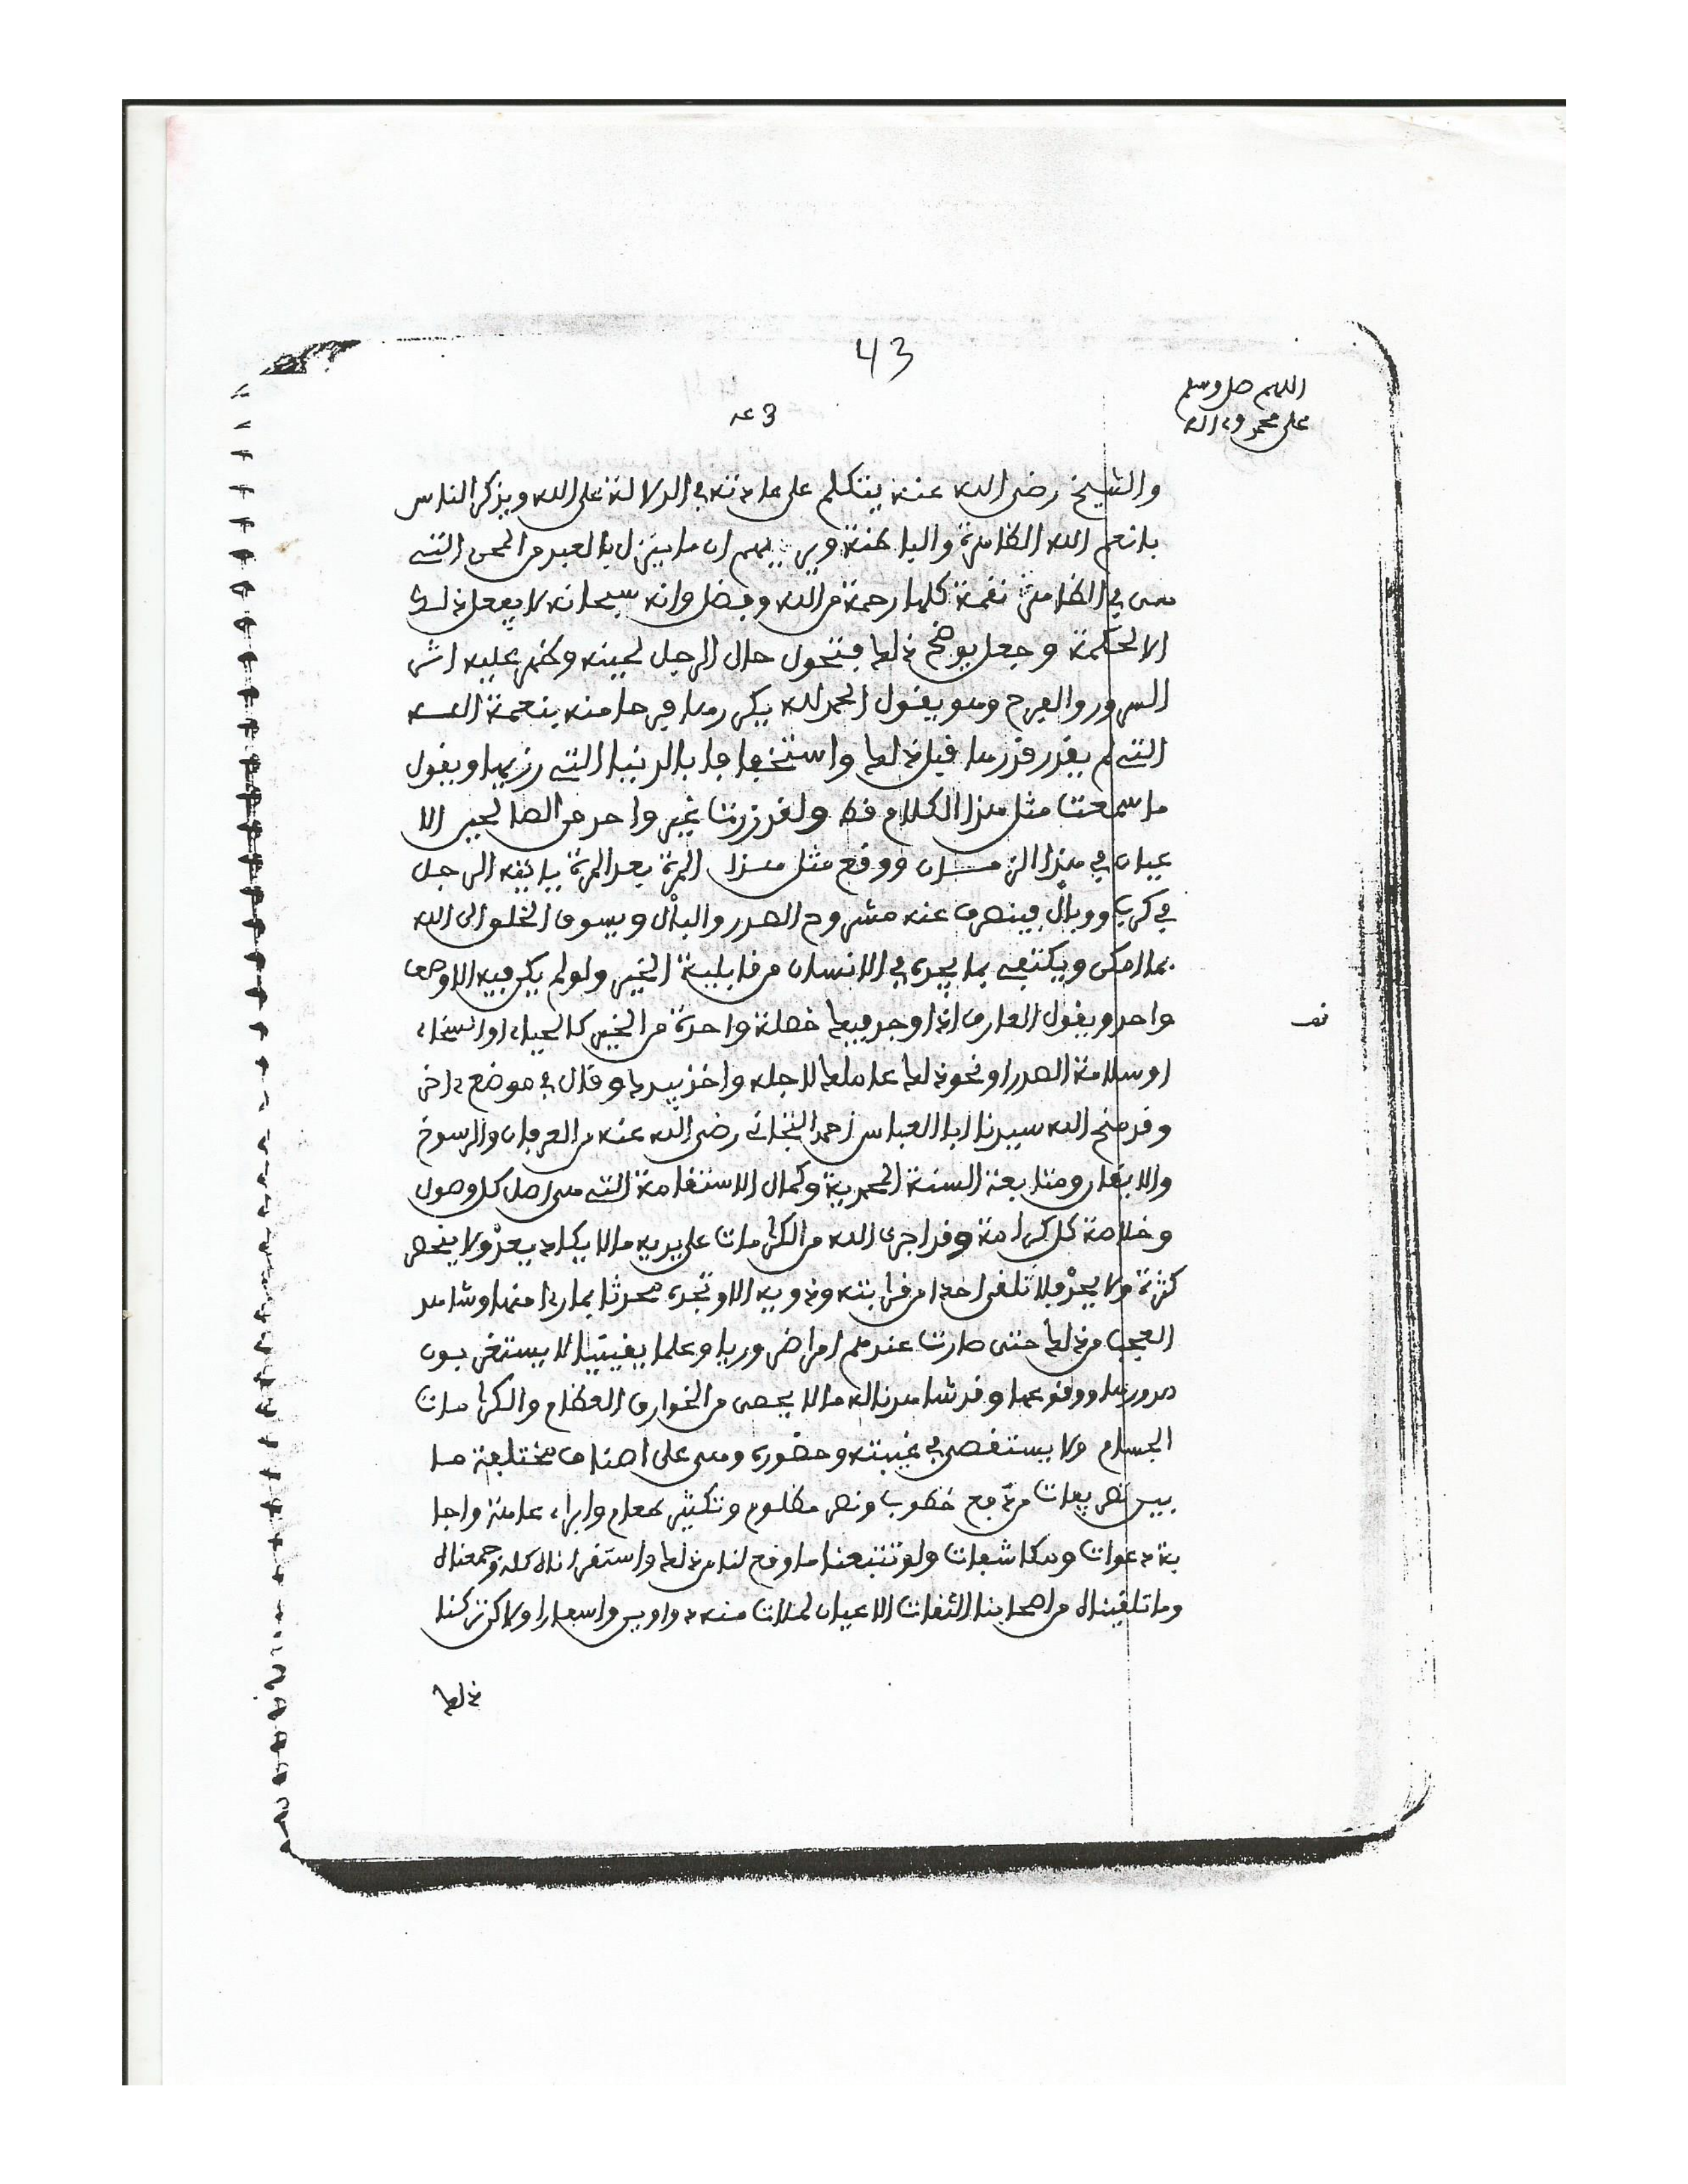 43
اللهم صل وسلم
على محمد وءاله
43
والشيخ رضى الله عنه يتكلم على عادته في الدلالة على الله ويذكر الناس
بانعم الله الظاهرة والباطنة ويريهم ان ما ينزل بالعبد من المحن التى
هى في الظاهر نقمة كلها رحمة من الله وفضل وانه سبحانه لا يفعل ذلك
الا لحكمة وجعل يوضح ذلك فتحول حال الرجل لحينه وظهر عليه اثر
السرور والفرح وهو يقول الحمد لله يكررها فرحا منه بنعمة الله
التى لم يقدر قدرها قبل ذلك واستخفافا بالدنيا التى رزيها ويقول
ما سمعت مثل هذا الكلام قط ولقد زرت غير واحد من الصالحين الا
عيان في هذا الزمان ووقع مثل هذا المرة بعد المرة ياتيه الرجل
في كرب ووبال فينصرف عنه مشروح الصدر والبال ويسوق الخلق الى الله
بما امكن ويكتفى بما يجده في الانسان من قابلية الخير ولو لم يكن فيه الا وصف
واحد ويقول العارف اذا وجد فيك خصلة واحدة من الخير كالحياء او السخاء
او سلامة الصدر او نحو ذلك عاملك لاجله واخذ بيدك وقال في موضع ءاخر
وقد منح الله سيدنا ابا العباس احمد التجانى رضى الله عنه من العرفان والرسوخ
والايقان ومتابعة السنة المحمدية وكمال الاستقامة التى هى اصل كل وصول
وخلاصة كل كرامة وقد اجرى الله من الكرامات على يديه ما لا يكاد يعد ولا ينحصر
كثرة ولا يحد فلا تلقى احدا من قرابته وذويه الا وتجده محدثا بما رءا منها وشاهد
العجب من ذلك حتى صارت عندهم امرا ضروريا وعلما يقينيا لا يستغربون
صدورها ووقوعها وقد شاهدنا له ما لا يحصى من الخوارق العظام والكرامات
الجسام ولا يستقصى في غيبته وحضوره وهى على اصناف مختلفة ما
بين تصريفات من دفع خطوب ونصر مظلوم وتكثير طعام وابراء عاهة واجا
بة دعوات ومكاشفات ولو تتبعنا ما وقع لنا من ذلك واستقرأناه كله وجمعناه
وما تلقيناه من اصحابنا الثقات الاعيان لملات منه دواوين واسفارا ولاكن تركنا
ذلك